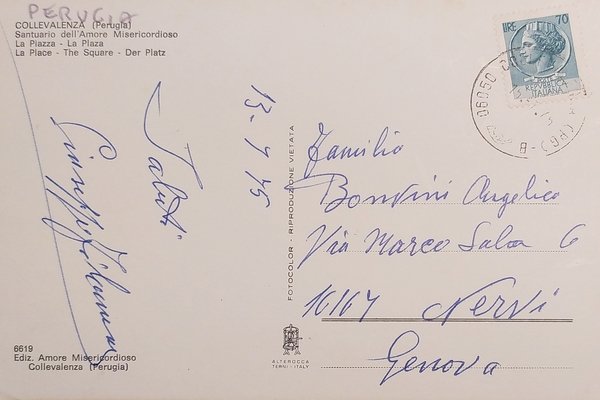 PERUGIA
COLLEVALENZA (Perugia)
Santuario dell'Amore Misericordioso
La Piazza - La Plaza
La Place - The Square - Der Platz
13.7.75
Saluti
Giuseppe
6619
Ediz. Amore Misericordioso
Collevalenza (Perugia)
FOTOCOLOR - RIPRODUZIONE VIETATA
ALTEROCCA
TERNI - ITALY
LIRE 70
REPUBBLICA
ITALIANA
06050 (PG) - B
Familia
Bonvini Angelico
Via Marco Sala 6
16167 Nervi
Genova